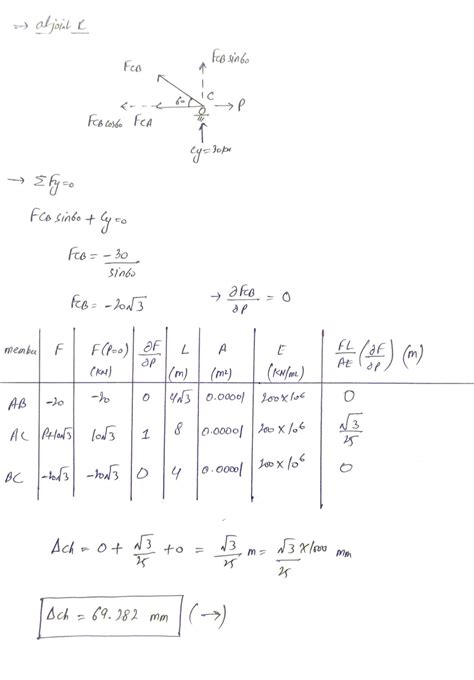 → at joint C
FCB sin60
FCB
60
C
P
FCB cos60 FCA
Cy=30kN
→ ΣFy=0
FCB sin60 + Cy=0
FCB = -30/sin60
FCB = -20√3 → ∂FCB/∂P = 0
member F F(P=0) (KN) ∂F/∂P L (m) A (m²) E (KN/m2) FL/AE (∂F/∂P) (m)
AB -20 -20 0 4√3 0.00001 200×10⁶ 0
AC P+10√3 10√3 1 8 0.00001 200×10⁶ √3/25
BC -20√3 -20√3 0 4 0.00001 200×10⁶ 0
Δch = 0+ √3/25 +0 = √3/25 m = √3×1000/25 mm
Δch = 69.282 mm (→)